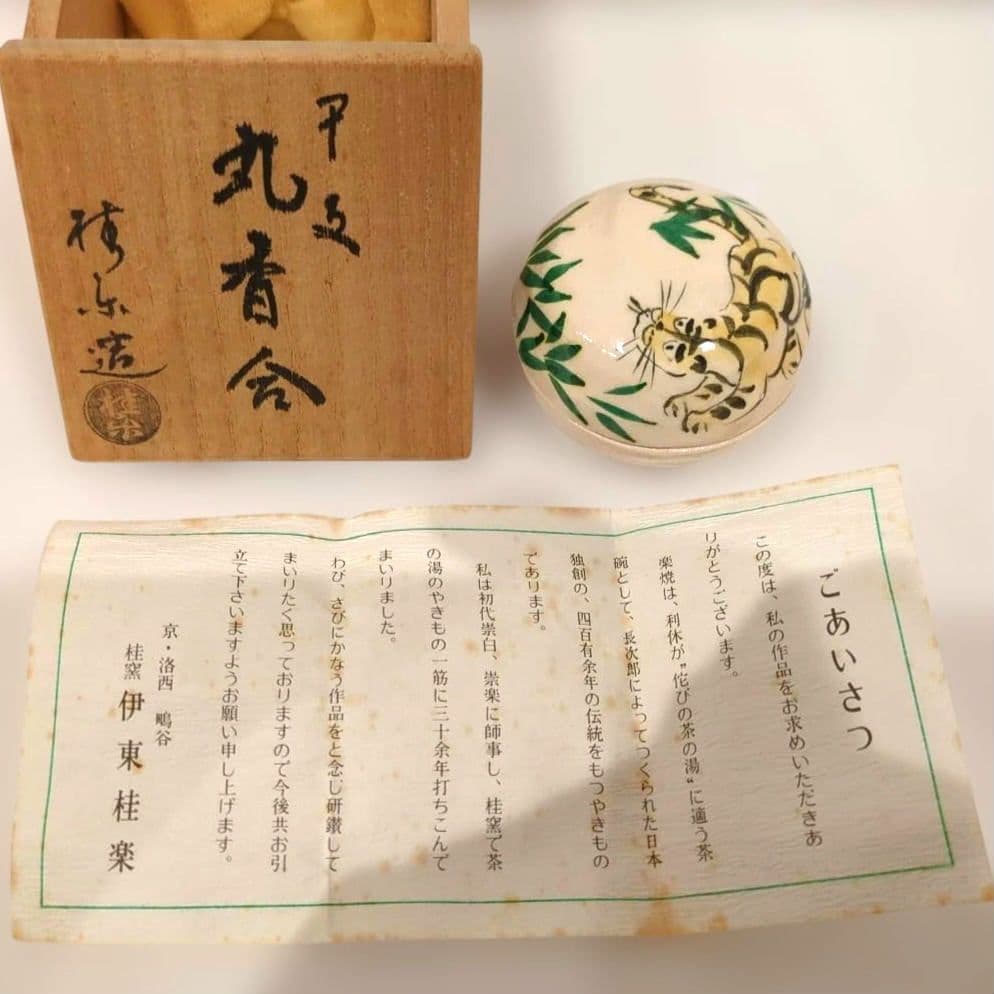 丸香合
桂楽造
ごあいさつ
この度は、私の作品をお求めいただきあ
りがとうございます。
楽焼は、利休が〝侘びの茶の湯〟に適う茶
碗として、長次郎によってつくられた日本
独創の、四百有余年の伝統をもつやきもの
であります。
私は初代崇白、崇楽に師事し、桂窯で茶
の湯のやきもの一筋に三十余年打ちこんで
まいりました。
わび、さびにかなう作品をと念じ研鑽して
まいりたく思っておりますので今後共お引
立て下さいますようお願い申し上げます。
京・洛西　鴫谷
桂窯　伊東桂楽